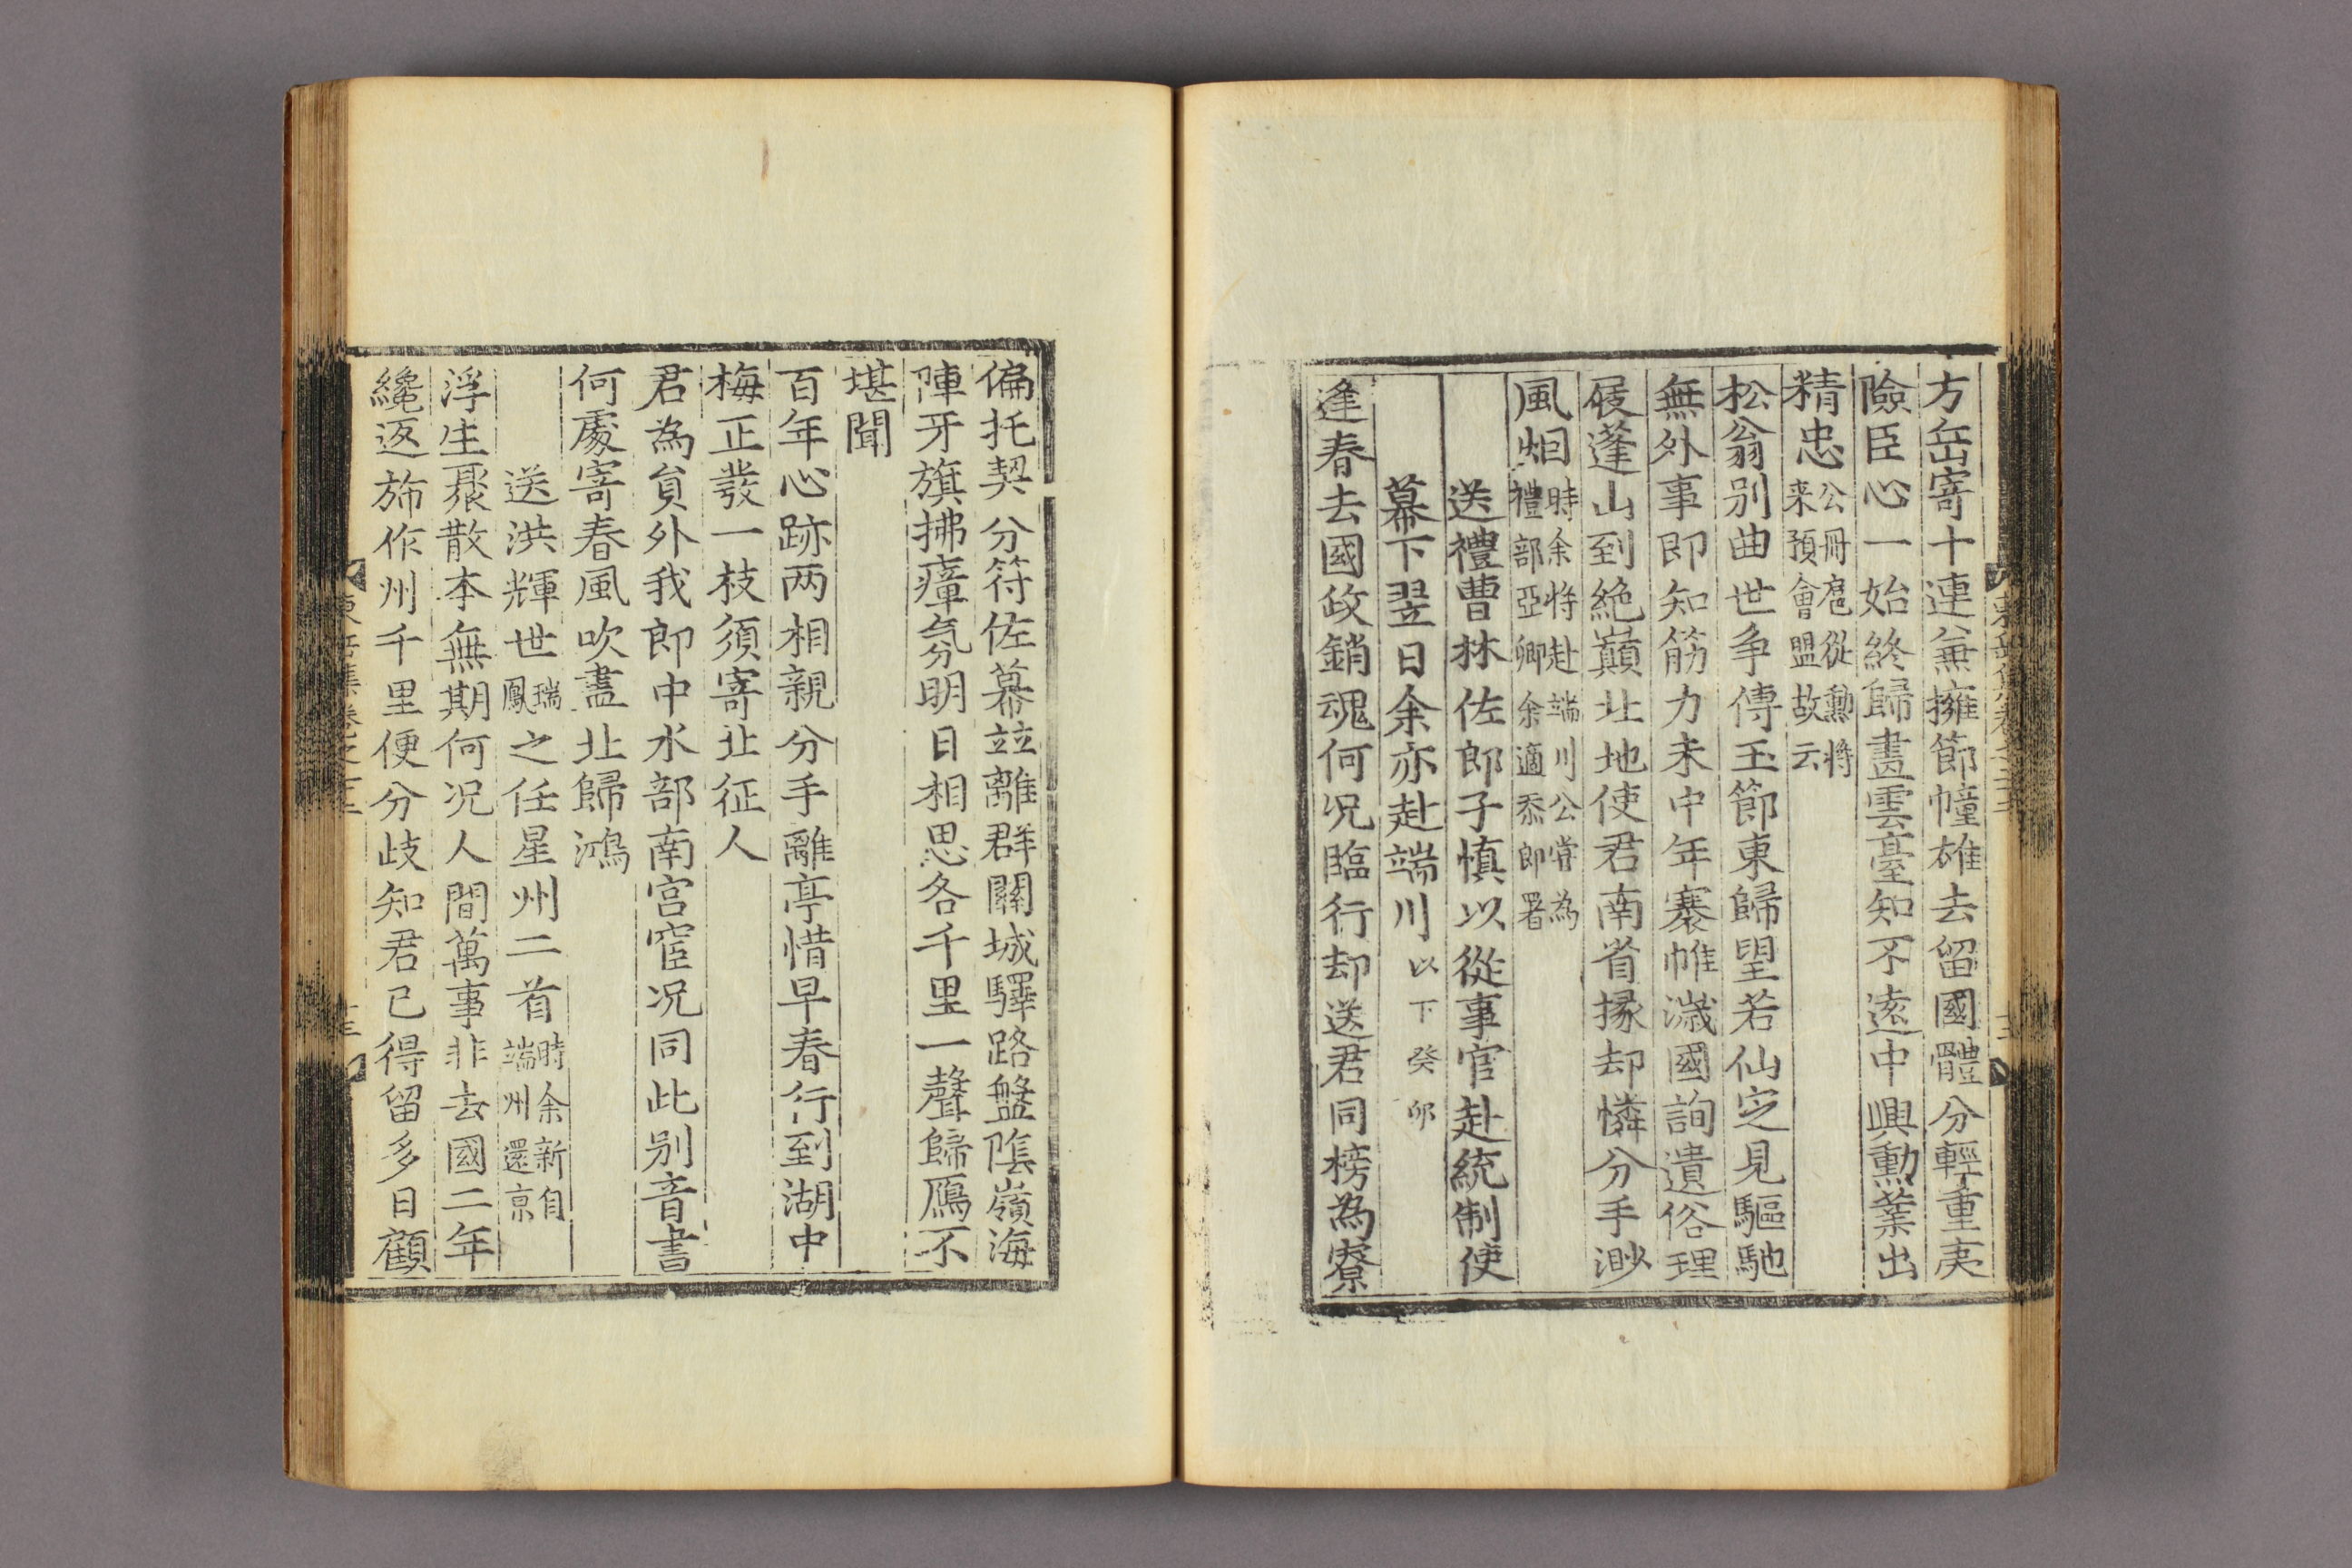 方岳寄十連兼擁節幢雄去留國體分輕重夷
險臣心一始終歸畫雲臺知不遠中興勳業出
精忠公冊扈從勳將
来預會盟故云
松翁別曲世争傳玉節東歸望若仙㝎見驅馳
無外事即知筋力未中年褰帷濊國詢遺俗理
屐蓬山到絶巓北地使君南省掾却憐分手渺
風烟時余将赴端川公甞為
禮部亞卿余適忝郎署
送禮曹林佐郎子慎以從事官赴統制使
幕下翌日余亦赴端川以下癸卯
逢春去國政銷魂何况臨行却送君同榜為寮
偏托契分符佐幕竝離群關城驛路盤陰嶺海
陣牙旗拂瘴氛明日相思各千里一聲歸鴈不
堪聞
百年心跡两相親分手離亭惜早春行到湖中
梅正發一枝須寄北征人
君為貟外我郎中水部南宮宦况同此別音書
何處寄春風吹盡北歸鴻
送洪輝世瑞鳳之任星州二首時余新自
端州還京
浮生聚散本無期何况人間萬事非去國二年
纔返旆作州千里便分歧知君已得留多日顧